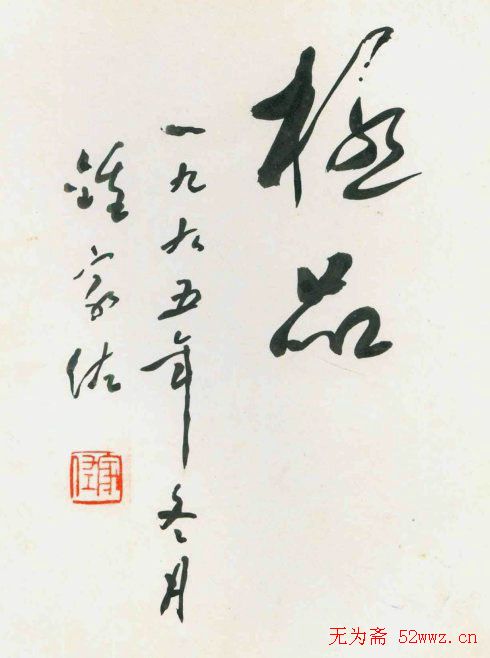 極品
一九九五年冬月
鍾家佐
家佐
无为斋 52wwz.cn